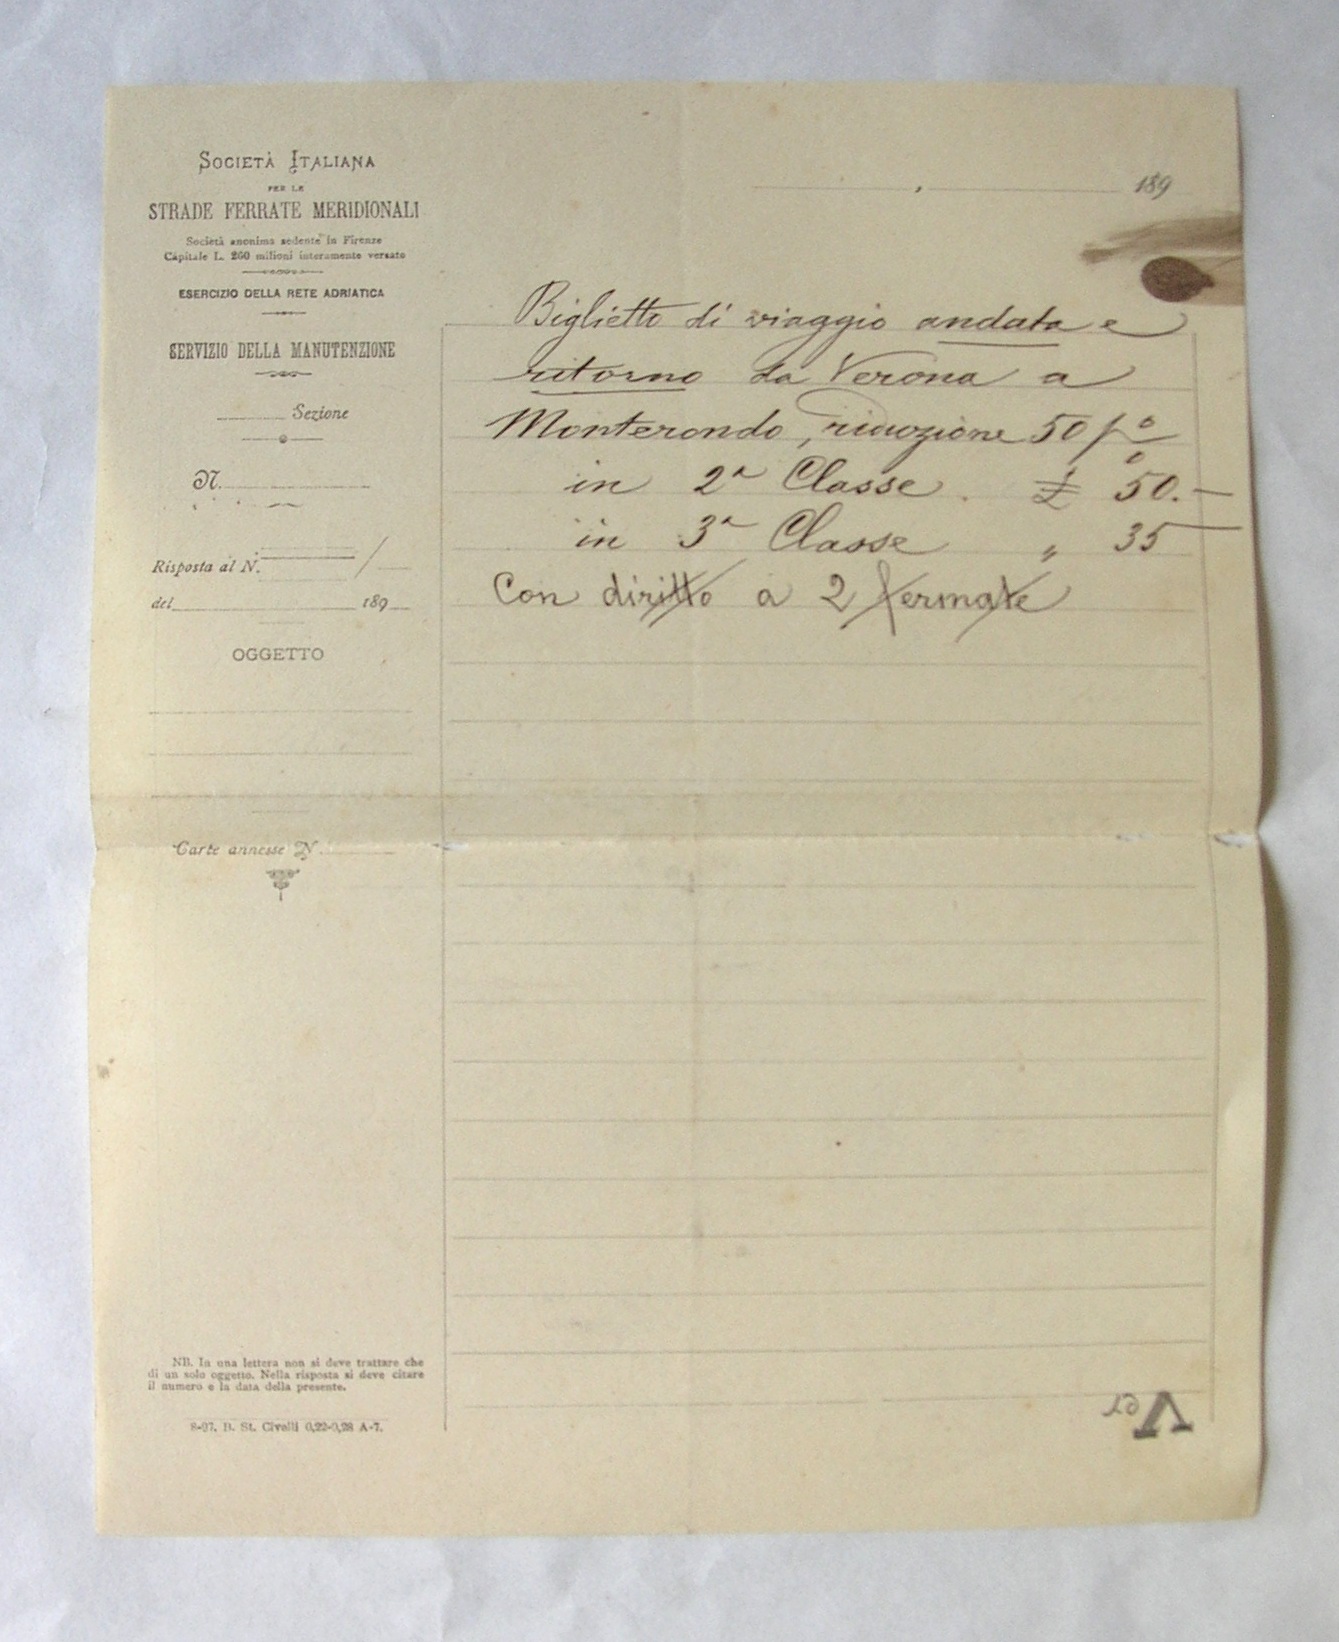 SOCIETÀ ITALIANA
PER LE
STRADE FERRATE MERIDIONALI
Società anonima sedente in Firenze
Capitale L. 260 milioni interamente versato
ESERCIZIO DELLA RETE ADRIATICA
SERVIZIO DELLA MANUTENZIONE
Sezione
N.
Risposta al N. /
del 189
OGGETTO
Carte annesse N
NB. In una lettera non si deve trattare che
di un solo oggetto. Nella risposta si deve citare
il numero e la data della presente.
8-97. B. St. Civelli 0,22-0,28 A-7.
, 189
Biglietto di viaggio andata e
ritorno da Verona a
Monterondo, riduzione 50 p%
in 2ª Classe. £ 50.—
in 3ª Classe „ 35
Con diritto a 2 fermate